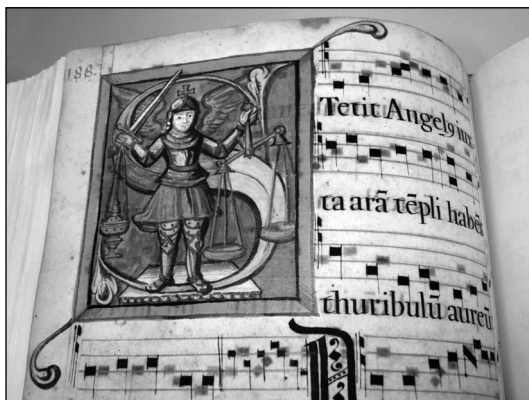 188.
STetit Angelꝰ iux
ta arā tēpli habēs
thuribulū aureū
N